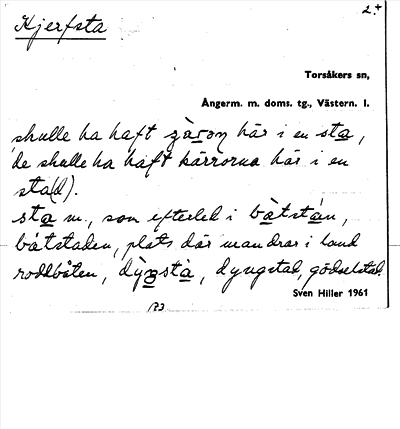 Kjerfsta
2.+
Torsåkers sn,
Ångerm. m. doms. tg., Västern. l.
skulle ha haft här i en sta,
de skulle ha haft kärrorna här i en
sta(d).
sta m., som efterled i bàtstán,
båtstaden, plats där man drar i land
roddbåten, dyngstad, gödselstad.
Sven Hiller 1961
173